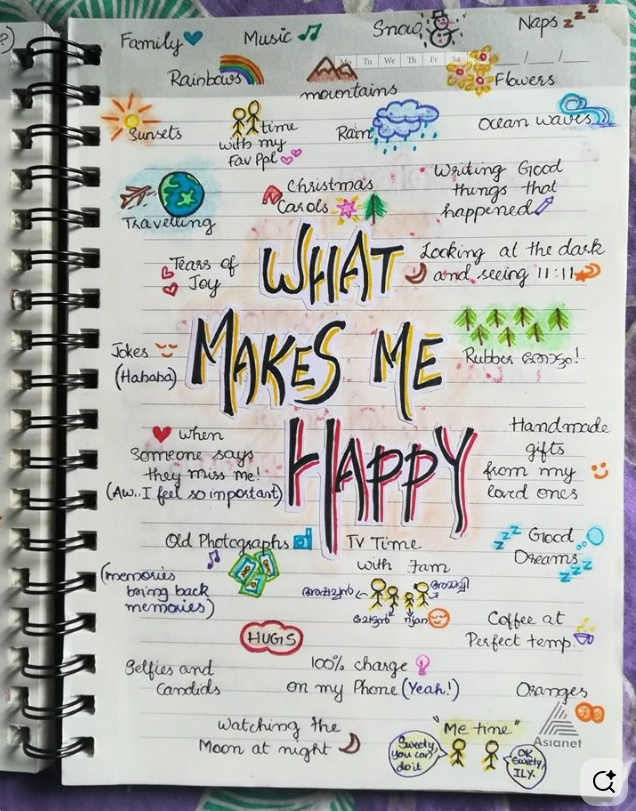 ?)
Family
Music
Snow
Naps zzz
Mo Tu We Th Fr Sa
Rainbows
mountains
Flowers
Sunsets
time
with my
Fav Ppl
Rain
Ocean waves
Travelling
Christmas
Carols
Writing Good
things that
happened
Tears of
Joy
WHAT
Looking at the dark
and seeing 11:11
MAKES ME
Jokes
(Hahaha)
Rubber തോട്ടം!
HAPPY
when
Someone says
they miss me!
(Aw..I feel so important)
Handmade
gifts
from my
loved ones
Old Photographs
(memories
bring back
memories)
TV Time
with Fam
അപ്പച്ചൻ
അമ്മച്ചി
ചേട്ടൻ
ഞാൻ
zzz
Good
Dreams
zzz
HUGS
Coffee at
Perfect temp.
Selfies and
Candids
100% charge
on my Phone (Yeah!)
Oranges
Watching the
Moon at night
"Me time"
Sweety,
you can
do it
OK
Sweety,
ILY.
Asianet